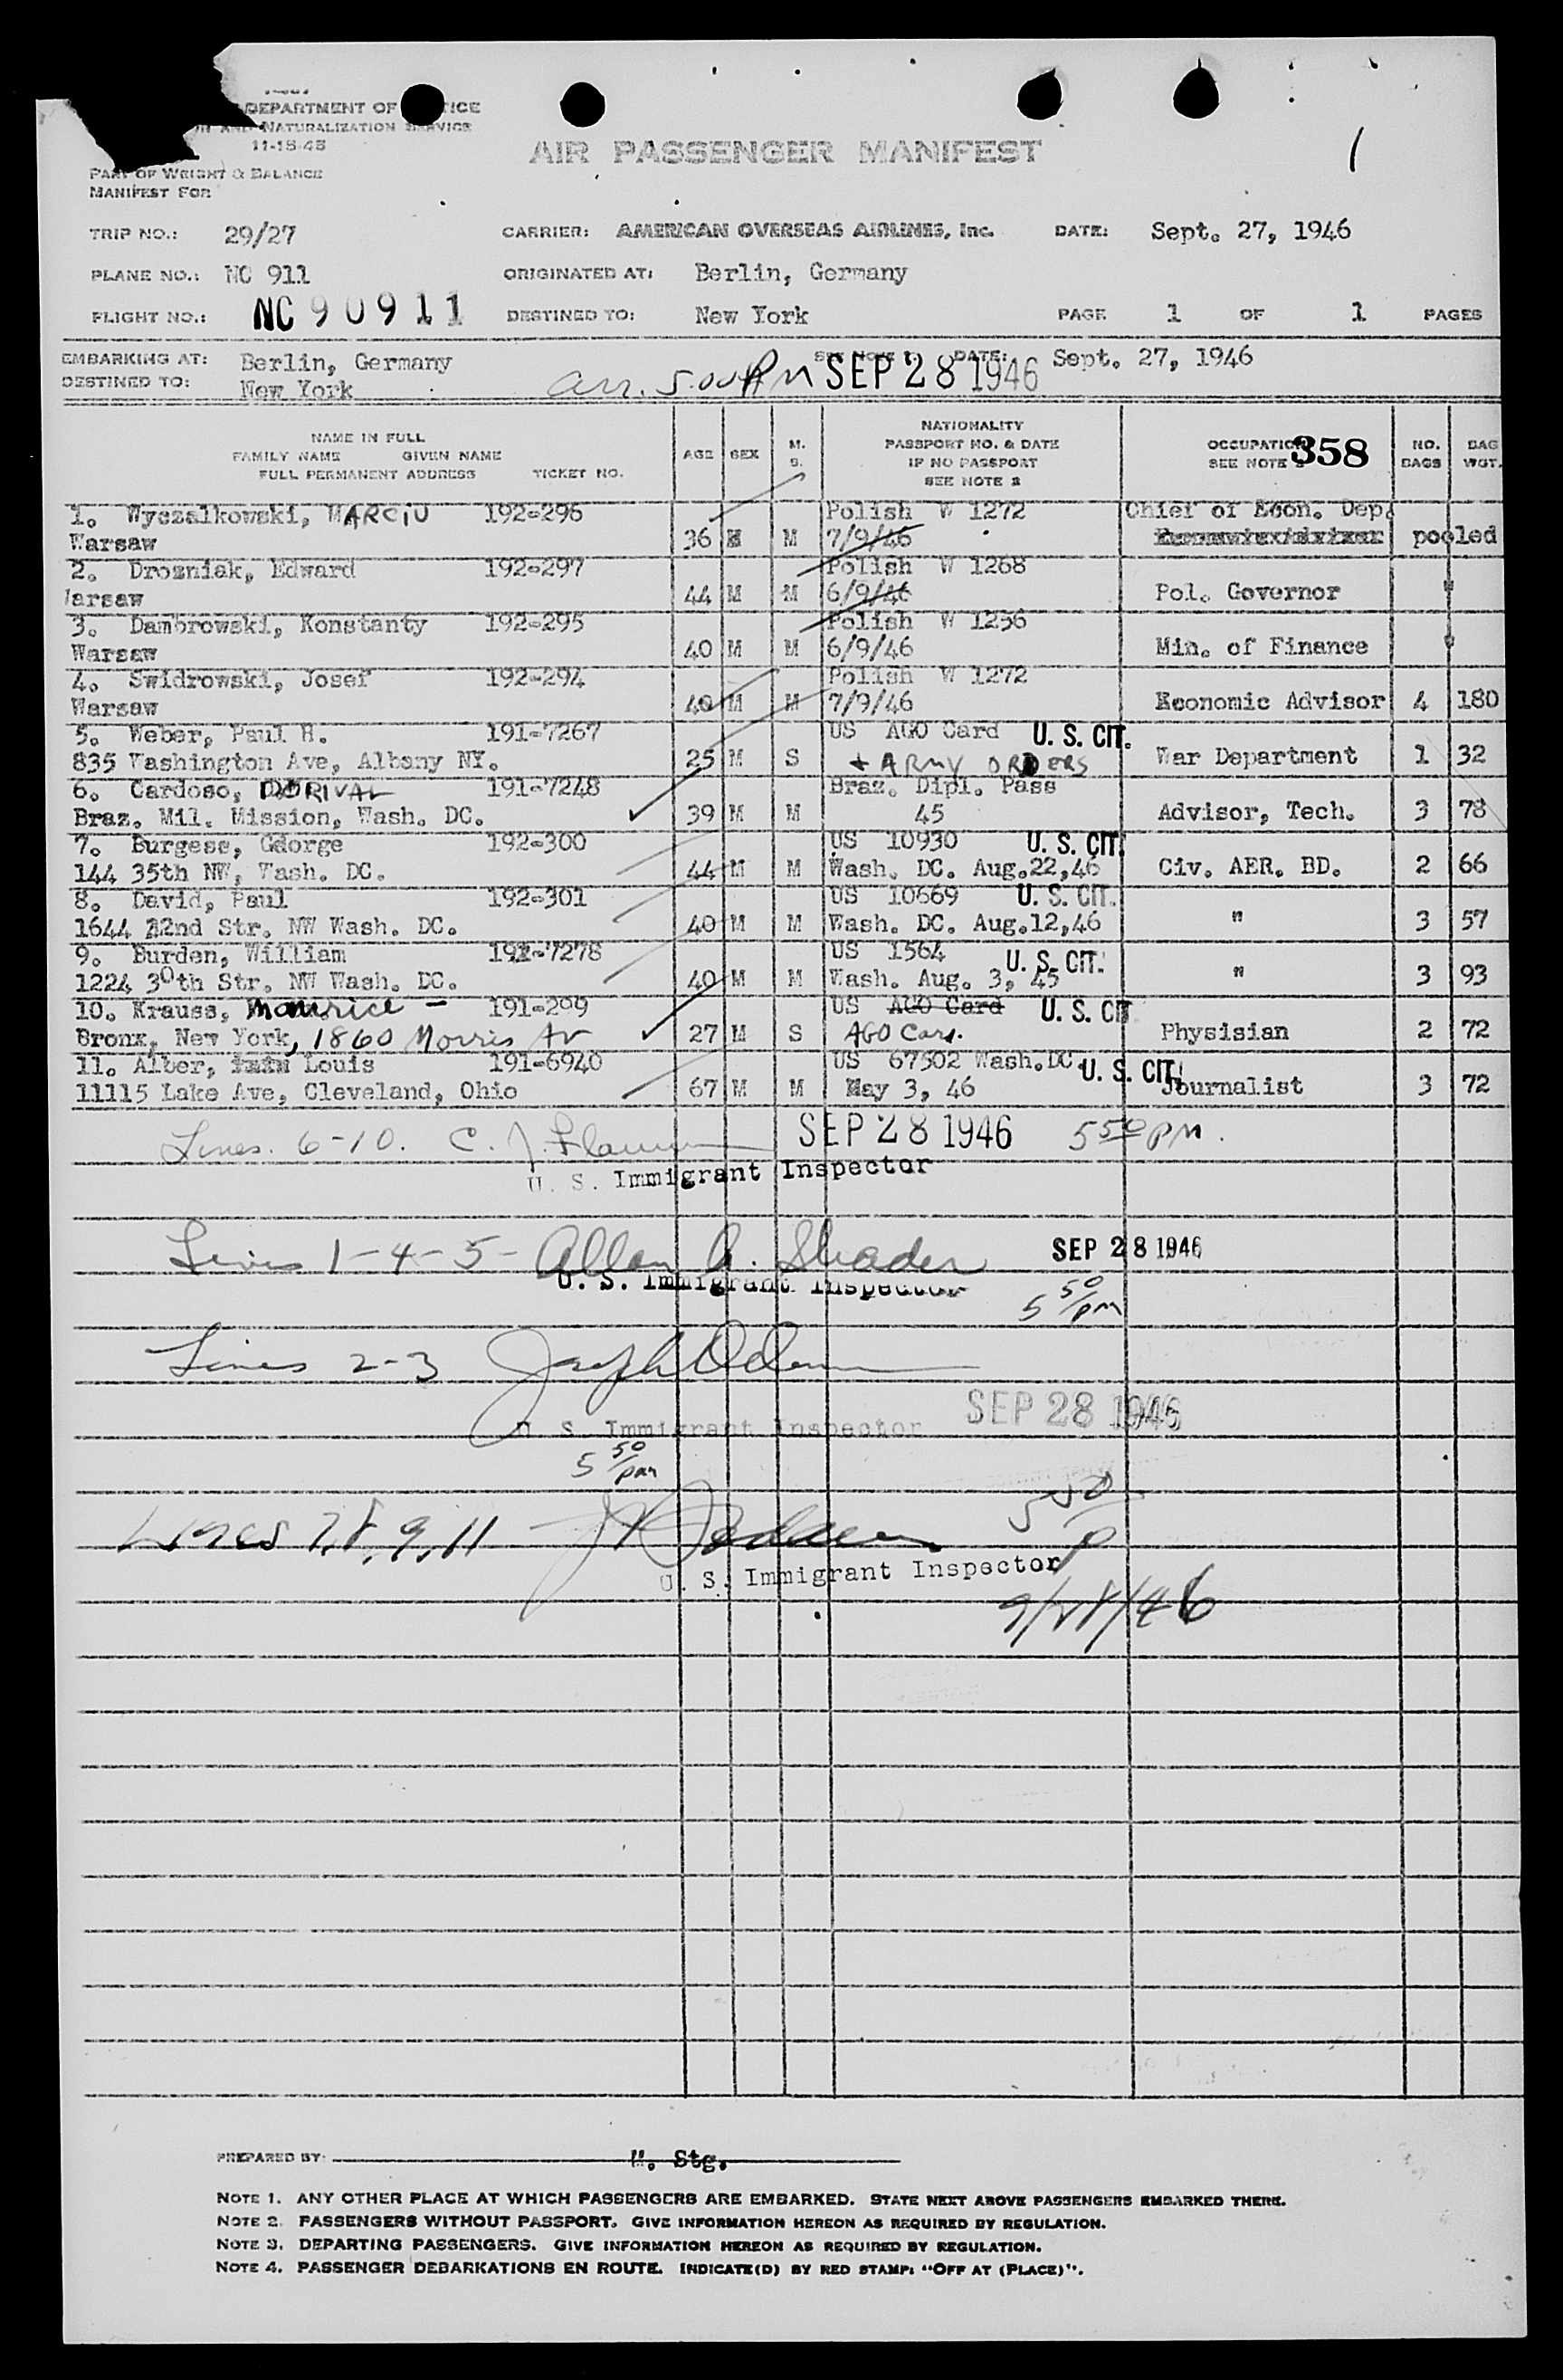 DEPARTMENT OF
AND NATURALIZATION SERVICE
11-15-45
AIR PASSENGER MANIFEST
1
PART OF WEIGHT & BALANCE
MANIFEST FOR
TRIP NO.: 29/27 CARRIER: AMERICAN OVERSEAS AIRLINES, Inc. DATE: Sept. 27, 1946
PLANE NO.: NC 911 ORIGINATED AT: Berlin, Germany
FLIGHT NO.: NC90911 DESTINED TO: New York PAGE 1 OF 1 PAGES
EMBARKING AT: Berlin, Germany SEE NOTE DATE: Sept. 27, 1946
DESTINED TO: New York arr. 5:00 PM SEP 28 1946
NAME IN FULL
FAMILY NAME GIVEN NAME
FULL PERMANENT ADDRESS TICKET NO.
AGE SEX M. S.
NATIONALITY
PASSPORT NO. & DATE
IF NO PASSPORT
SEE NOTE 2
OCCUPATION 358
SEE NOTE
NO. BAGS
BAG WGT.
1. Wyczalkowski, MARCIN 192-296 Polish W 1272 Chief of Econ. Dep.
Warsaw 36 M M 7/9/46 pooled
2. Drozniak, Edward 192-297 Polish W 1268
Warsaw 44 M M 6/9/46 Pol. Governor "
3. Dambrowski, Konstanty 192-295 Polish W 1256
Warsaw 40 M M 6/9/46 Min. of Finance "
4. Swidrowski, Josef 192-294 Polish W 1272
Warsaw 40 M M 7/9/46 Economic Advisor 4 180
5. Weber, Paul H. 191-7267 US AGO Card U. S. CIT.
835 Washington Ave, Albany NY. 25 M S + ARMY ORDERS War Department 1 32
6. Cardoso, DORIVAL 191-7248 Braz. Dipl. Pass
Braz. Mil. Mission, Wash. DC. 39 M M 45 Advisor, Tech. 3 78
7. Burgess, George 192-300 US 10930 U. S. CIT.
144 35th NW, Wash. DC. 44 M M Wash. DC. Aug.22,46 Civ. AER. BD. 2 66
8. David, Paul 192-301 US 10669 U. S. CIT.
1644 22nd Str. NW Wash. DC. 40 M M Wash. DC. Aug.12,46 " 3 57
9. Burden, William 191-7278 US 1564 U. S. CIT.
1224 30th Str. NW Wash. DC. 40 M M Wash. Aug. 3, 45 " 3 93
10. Krauss, Maurice - 191-209 US AGO Card U. S. CIT
Bronx, New York, 1860 Morris Av 27 M S AGO Card. Physisian 2 72
11. Alber, Louis 191-6940 US 67502 Wash.DC. U. S. CIT.
11115 Lake Ave, Cleveland, Ohio 67 M M May 3, 46 Journalist 3 72
Lines. 6-10. C. J. SEP 28 1946 5 50 PM.
U. S. Immigrant Inspector
Lines 1-4-5- Allan SEP 28 1946
U. S. Immigrant Inspector
5 50 pm
Lines 2-3 Joseph
U. S. Immigrant Inspector SEP 28 1946
5 50 pm
Lines 7, 8, 9, 11 5 50 P
U. S. Immigrant Inspector
9/28/46
PREPARED BY: Stg.
NOTE 1. ANY OTHER PLACE AT WHICH PASSENGERS ARE EMBARKED. STATE NEXT ABOVE PASSENGERS EMBARKED THERE.
NOTE 2. PASSENGERS WITHOUT PASSPORT. GIVE INFORMATION HEREON AS REQUIRED BY REGULATION.
NOTE 3. DEPARTING PASSENGERS. GIVE INFORMATION HEREON AS REQUIRED BY REGULATION.
NOTE 4. PASSENGER DEBARKATIONS EN ROUTE. INDICATE(D) BY RED STAMP: "OFF AT (PLACE)".